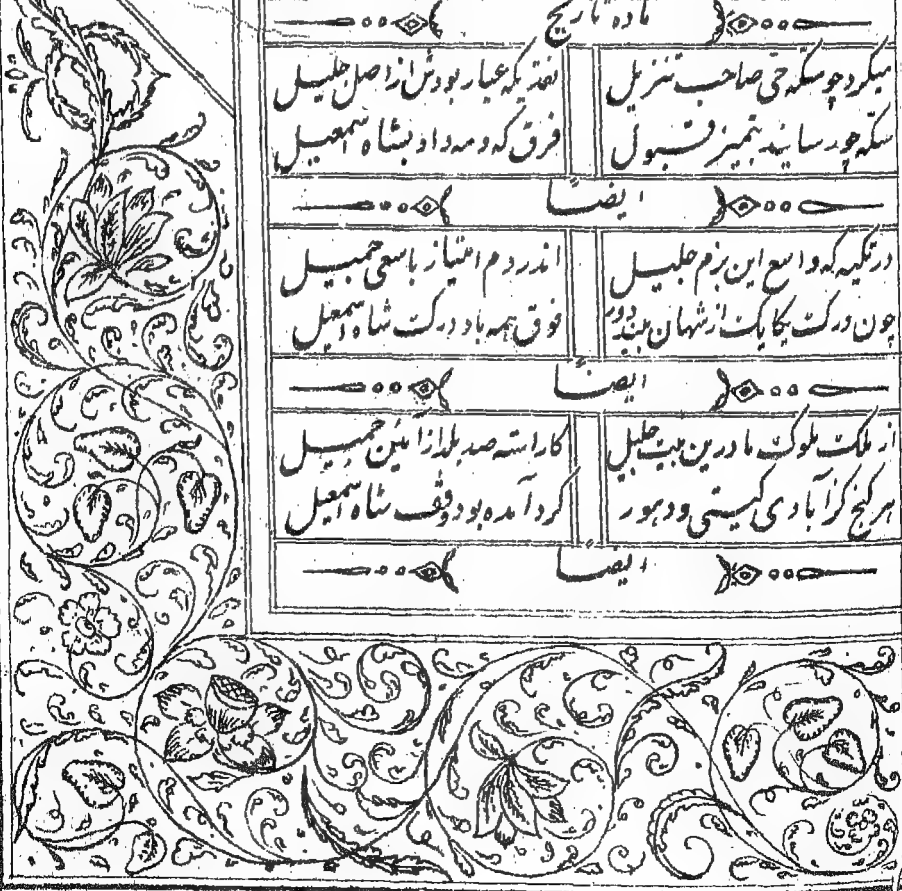 ماده تاریخ
میکرد چو سکه حی صاحب تنزیل نقدیکه عیار بودش از اصل جلیل
سکه چو رسانید بتمیز قبول فرق که و مه داد بشاه اسمعیل
ایضاً
در تکیه که واسع این بزم جلیل اندر دم امتیاز با سعی جمیل
چون درکت یکایک از شهان بیند دور فوق همه باد درکت شاه اسمعیل
ایضاً
از ملک ملوک ما درین بیت جلیل کاراسته صد بلد از آئین جمیل
هر گنج کز آبادی گیتی و دهور گرد آمده بود وقف شاه اسمعیل
ایضاً